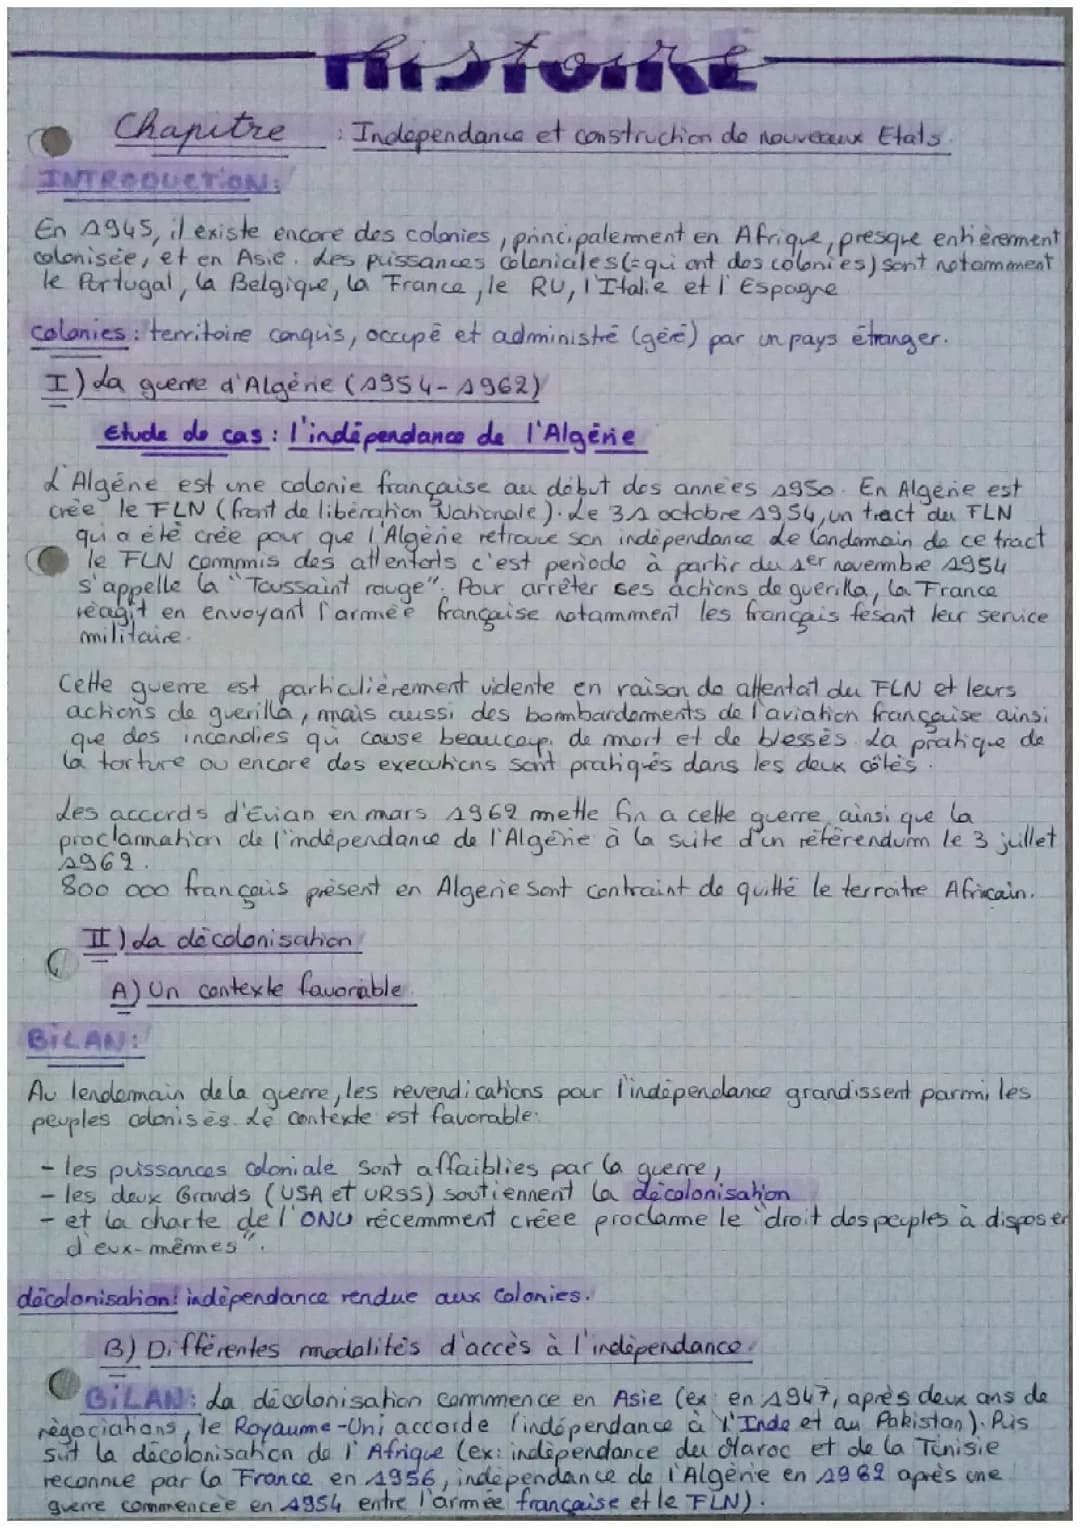 HISTOIRE
Chapitre : Indépendance et construction de nouveaux Etats.
INTRODUCTION:
En 1945, il existe encore des colonies, principalement en Afrique, presque entièrement
colonisée, et en Asie. Les puissances coloniales (= qui ont des colonies) sont notamment
le Portugal, la Belgique, la France, le RU, l'Italie et l'Espagne
colonies : territoire conquis, occupé et administré (géré) par un pays étranger.
I) La guerre d'Algérie (1954-1962)
Etude de cas : l'indépendance de l'Algérie
L'Algérie est une colonie française au début des années 1950. En Algérie est
crée le FLN (front de libération Nationale). Le 31 octobre 1954, un tract du FLN
qui a été crée pour que l'Algérie retrouve son indépendance Le landemain de ce tract
le FLN commis des attentats c'est periode à partir du 1er novembre 1954
s'appelle la "Toussaint rouge". Pour arrêter ses actions de guerilla, la France
réagit en envoyant l'armée française notamment les français fesant leur service
militaire.
Cette guerre est particulièrement vidente en raison de attentat du FLN et leurs
actions de guerilla, mais aussi des bombardements de l'aviation française ainsi
que des incendies qui cause beaucoup de mort et de blessés. La pratique de
la torture ou encore des executions sont pratiqués dans les deux côtés.
Les accords d'Evian en mars 1962 mette fin a cette guerre, ainsi que la
proclammation de l'indépendance de l'Algérie à la suite d'un référendum le 3 juillet
1962.
800 000 français présent en Algerie sont contraint de quitté le terroitre Africain.
II) La décolonisation
A) Un contexte favorable
BiLAN:
Au lendemain de la guerre, les revendications pour l'indépendance grandissent parmi les
peuples colonisés. Le contexte est favorable:
- les puissances coloniale sont affaiblies par la guerre,
- les deux Grands (USA et URSS) soutiennent la décolonisation
- et la charte de l'ONU récemment créee proclamme le "droit des peuples à disposer
d'eux-mêmes".
décolonisation: indépendance rendue aux colonies.
B) Différentes modalités d'accès à l'indépendance.
BiLAN: La décolonisation commence en Asie (ex: en 1947, après deux ans de
négociations, le Royaume-Uni accorde l'indépendance à l'Inde et au Pakistan). Puis
suit la décolonisation de l'Afrique (ex: indépendance du Maroc et de la Tunisie
reconnue par la France en 1956, indépendance de l'Algérie en 1962 après une
guerre commencée en 1954 entre l'armée française et le FLN).